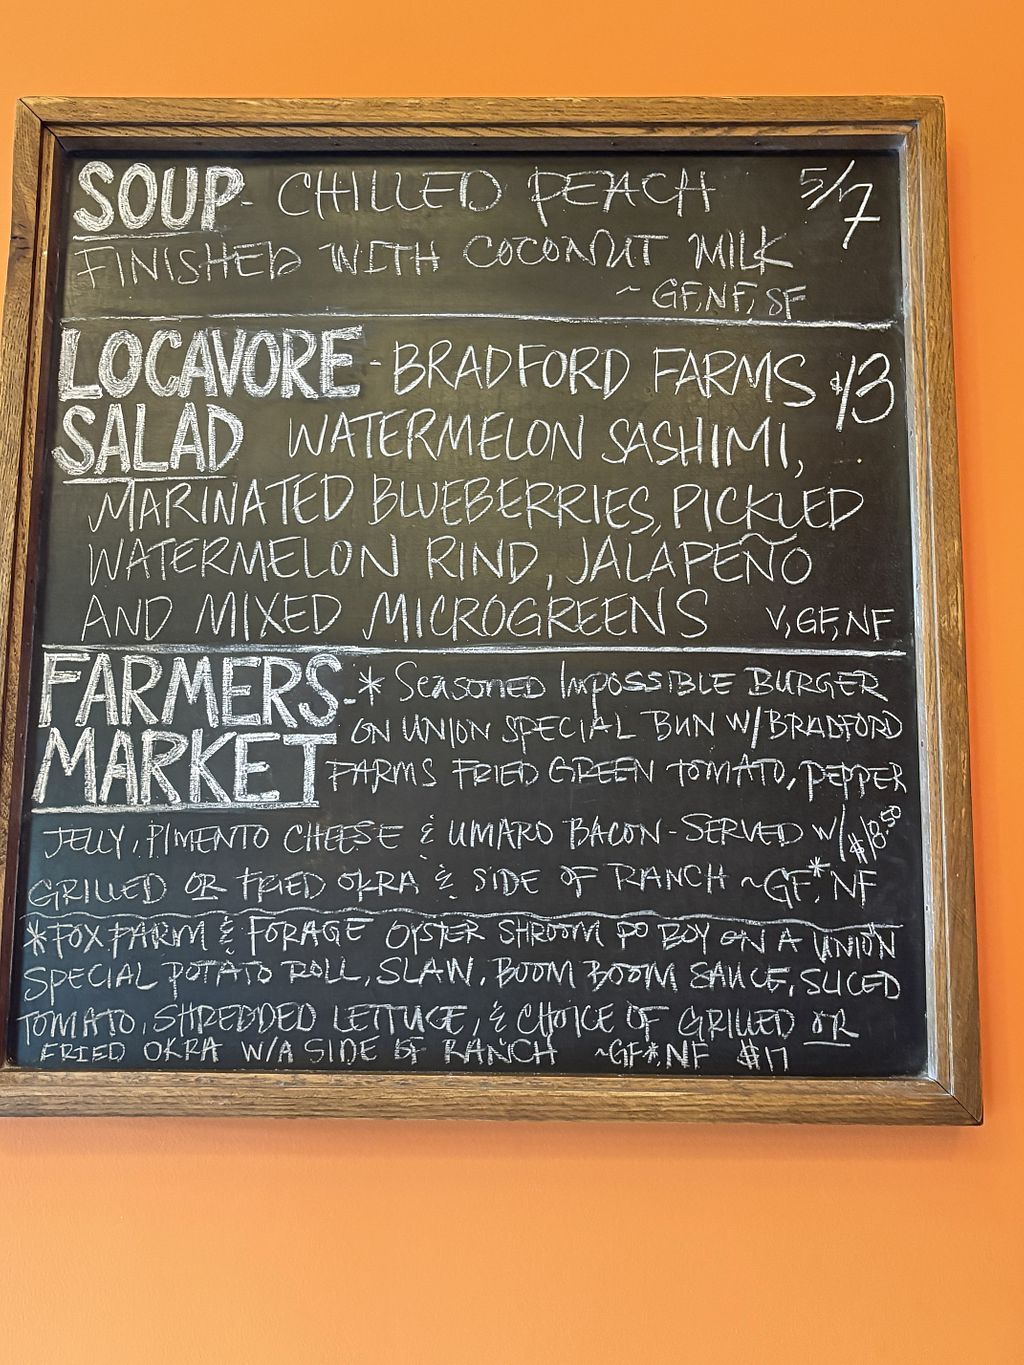 SOUP- CHILLED PEACH 5/7
FINISHED WITH COCONUT MILK
~ GF, NF, SF
LOCAVORE - BRADFORD FARMS $13
SALAD WATERMELON SASHIMI,
MARINATED BLUEBERRIES, PICKLED
WATERMELON RIND, JALAPEÑO
AND MIXED MICROGREENS V, GF, NF
FARMERS - * SEASONED IMPOSSIBLE BURGER
ON UNION SPECIAL BUN W/BRADFORD
MARKET FARMS FRIED GREEN TOMATO, PEPPER
JELLY, PIMENTO CHEESE & UMARO BACON - SERVED W/ $18.50
GRILLED OR FRIED OKRA & SIDE OF RANCH ~GF*, NF
*FOX FARM & FORAGE OYSTER SHROOM PO BOY ON A UNION
SPECIAL POTATO ROLL, SLAW, BOOM BOOM SAUCE, SLICED
TOMATO, SHREDDED LETTUCE, & CHOICE OF GRILLED OR
FRIED OKRA W/A SIDE OF RANCH ~GF*, NF $17